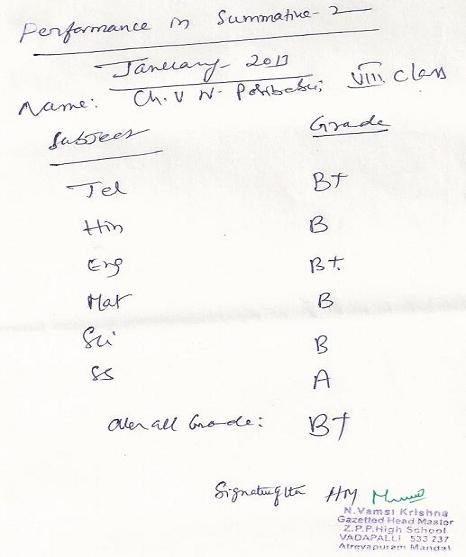 Performance in Summative-2
January-2013
Name: Ch. V N. VIII Class
Subject Grade
Tel B+
Hin B
Eng B+
Mat B
Sci B
SS A
Over all Grade: B+
Signature of the HM
N. Vamsi Krishna
Gazetted Head Master
Z.P.P.High School
VADAPALLI 533 237
Atreyapuram Mandal